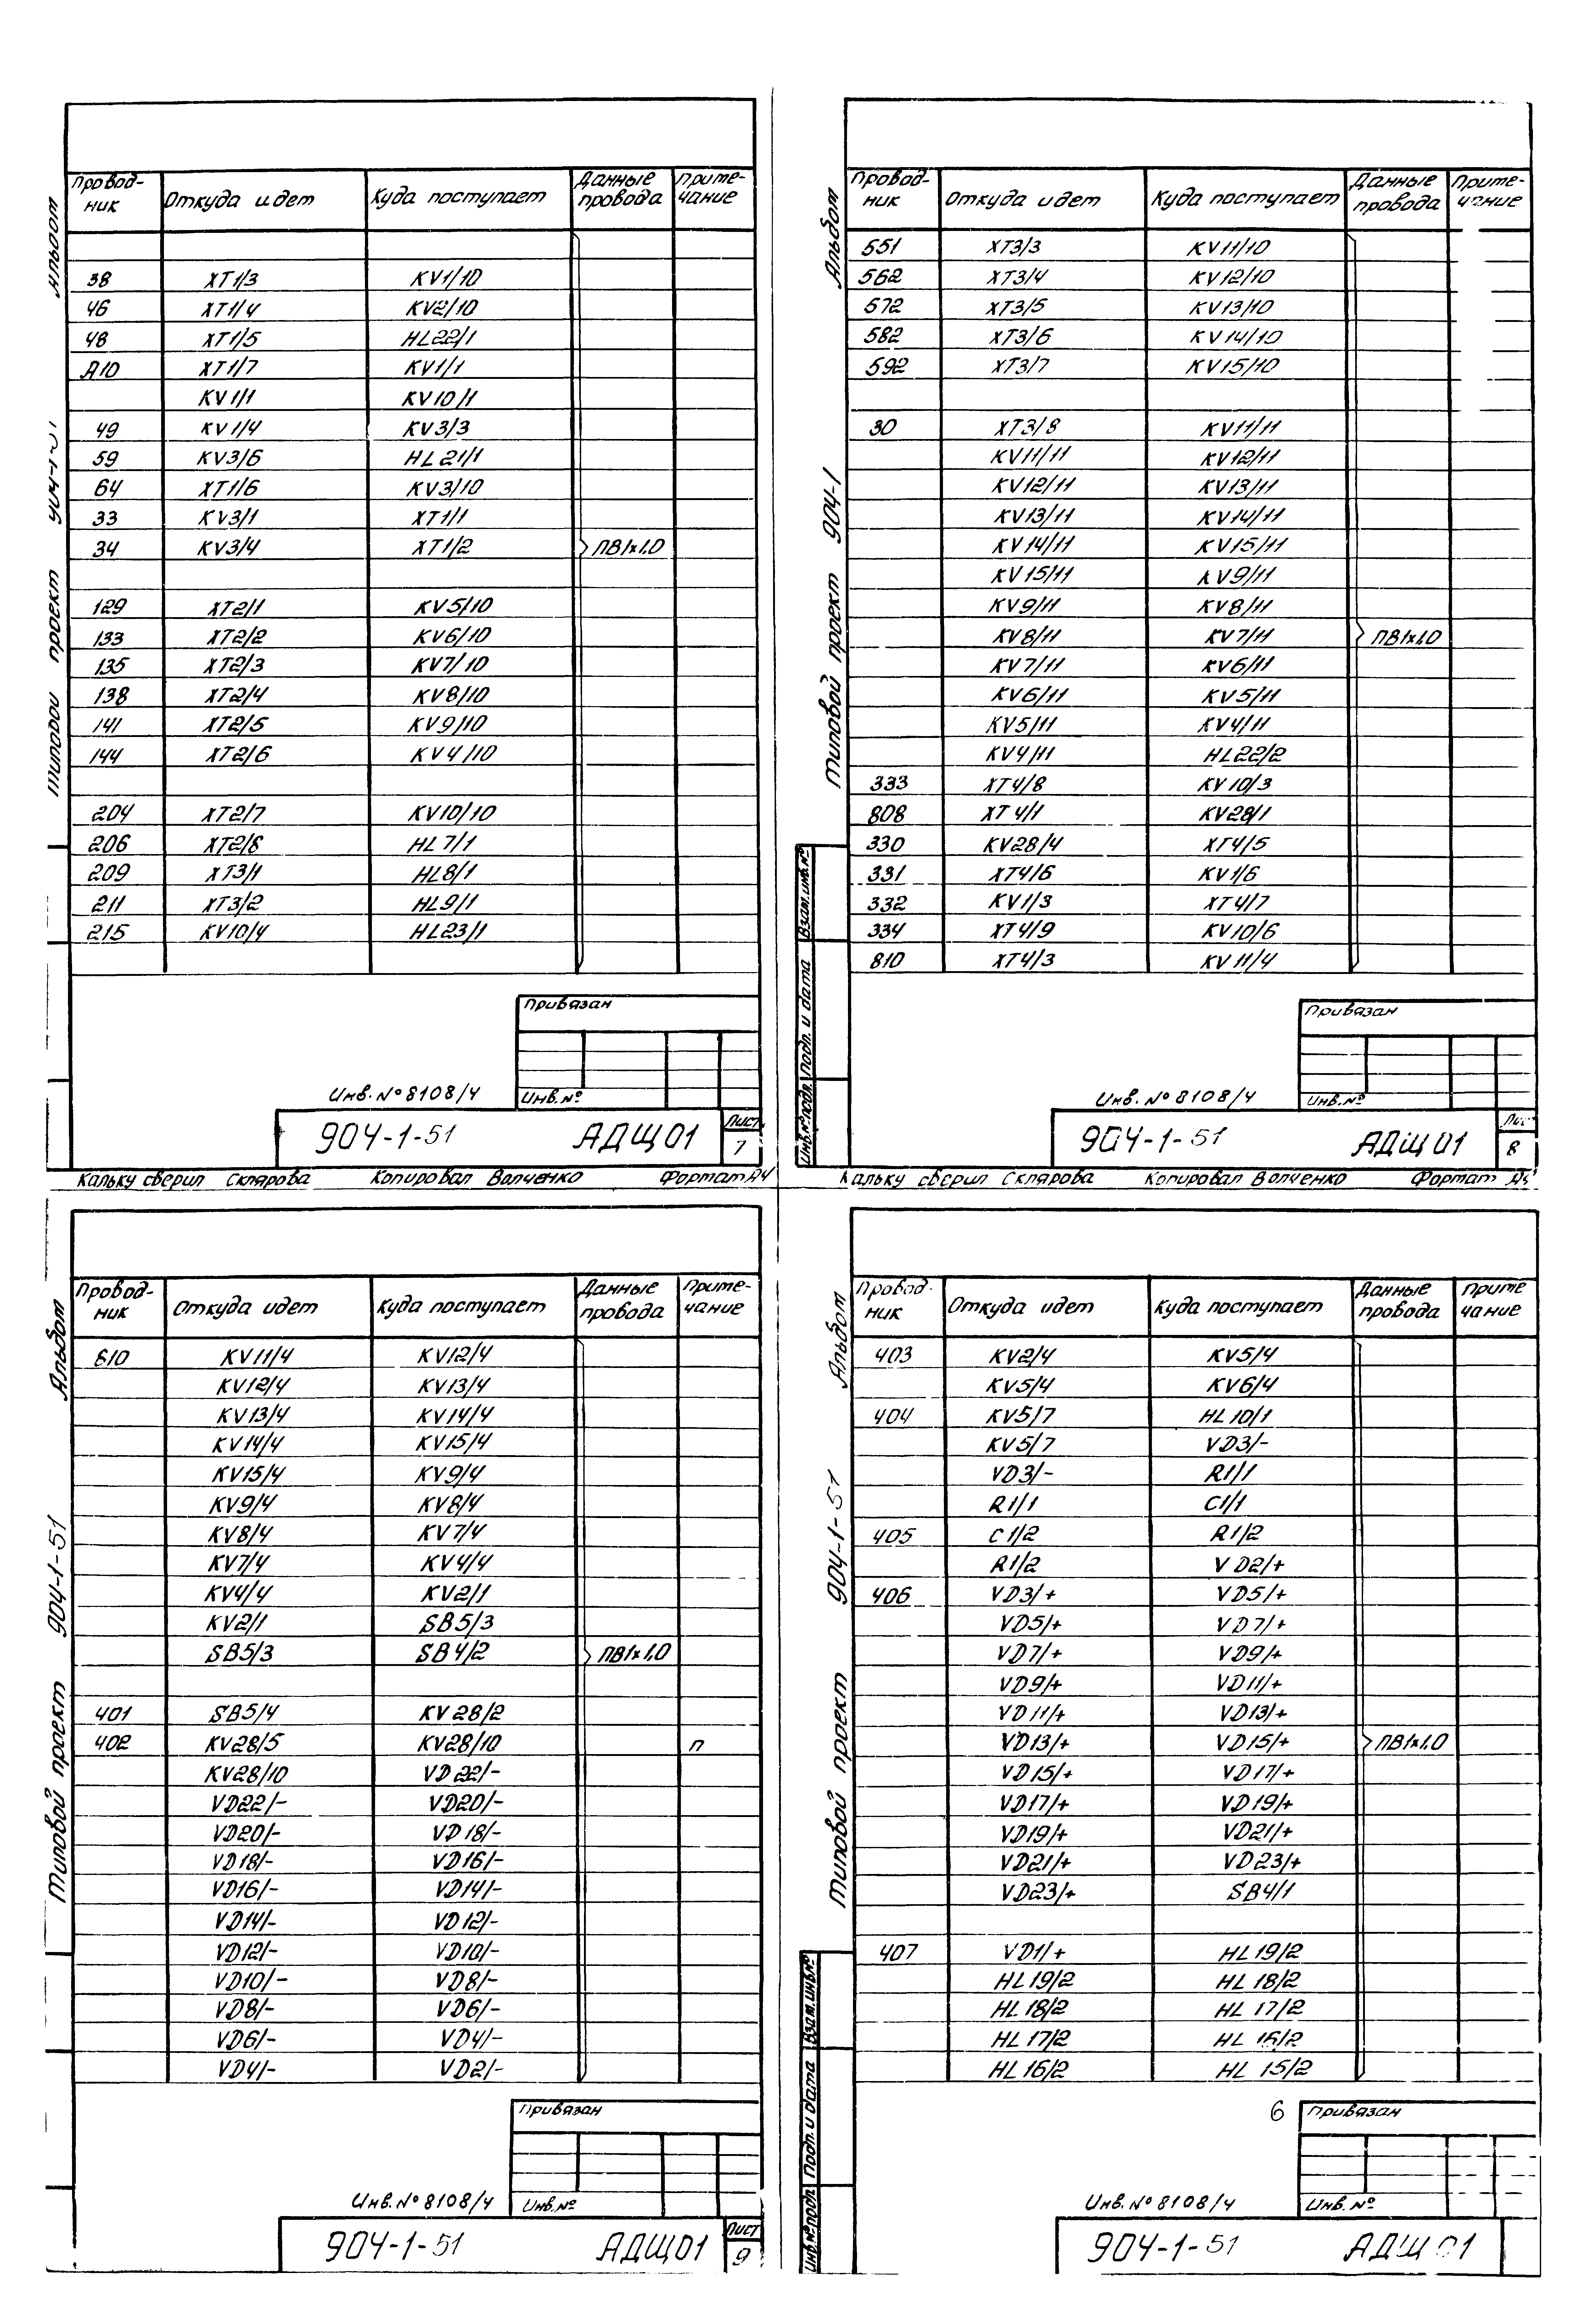 Альбом
904-1-51
Типовой проект
Провод-ник Откуда идет Куда поступает Данные провода Приме-чание
38 XT1/3 KV1/10
46 XT1/4 KV2/10
48 XT1/5 HL22/1
A10 XT1/7 KV1/1
KV1/1 KV10/1
49 KV1/4 KV3/3
59 KV3/6 HL21/1
64 XT1/6 KV3/10
33 KV3/1 XT1/1
34 KV3/4 XT1/2 ПВ1х1,0
129 XT2/1 KV5/10
133 XT2/2 KV6/10
135 XT2/3 KV7/10
138 XT2/4 KV8/10
141 XT2/5 KV9/10
144 XT2/6 KV4/10
204 XT2/7 KV10/10
206 XT2/8 HL7/1
209 XT3/1 HL8/1
211 XT3/2 HL9/1
215 KV10/4 HL23/1
Привязан
Инв.№ 8108/4 Инв.№
904-1-51 АДЩ01 Лист 7
Кальку сверил Склярова Копировал Волченко Формат А4
Альбом
904-1
Типовой проект
Провод-ник Откуда идет Куда поступает Данные провода Приме-чание
551 XT3/3 KV11/10
562 XT3/4 KV12/10
572 XT3/5 KV13/10
582 XT3/6 KV14/10
592 XT3/7 KV15/10
30 XT3/8 KV11/11
KV11/11 KV12/11
KV12/11 KV13/11
KV13/11 KV14/11
KV14/11 KV15/11
KV15/11 KV9/11
KV9/11 KV8/11
KV8/11 KV7/11 ПВ1х1,0
KV7/11 KV6/11
KV6/11 KV5/11
KV5/11 KV4/11
KV4/11 HL22/2
333 XT4/8 KV10/3
808 XT4/1 KV28/1
330 KV28/4 XT4/5
331 XT4/6 KV1/6
332 KV1/3 XT4/7
334 XT4/9 KV10/6
810 XT4/3 KV11/4
Взам.инв.№
Подп. и дата
Инв.№ подл.
Привязан
Инв.№ 8108/4 Инв.№
904-1-51 АДЩ01 Лис 8
Кальку сверил Склярова Копировал Волченко Формат А4
Альбом
904-1-51
Типовой проект
Провод-ник Откуда идет Куда поступает Данные провода Приме-чание
810 KV11/4 KV12/4
KV12/4 KV13/4
KV13/4 KV14/4
KV14/4 KV15/4
KV15/4 KV9/4
KV9/4 KV8/4
KV8/4 KV7/4
KV7/4 KV4/4
KV4/4 KV2/1
KV2/1 SB5/3
SB5/3 SB4/2 ПВ1х1,0
401 SB5/4 KV28/2
402 KV28/5 KV28/10 п
KV28/10 VD22/-
VD22/- VD20/-
VD20/- VD18/-
VD18/- VD16/-
VD16/- VD14/-
VD14/- VD12/-
VD12/- VD10/-
VD10/- VD8/-
VD8/- VD6/-
VD6/- VD4/-
VD4/- VD2/-
Привязан
Инв.№ 8108/4 Инв.№
904-1-51 АДЩ01 Лист 9
Альбом
904-1-51
Типовой проект
Провод-ник Откуда идет Куда поступает Данные провода Приме чание
403 KV2/4 KV5/4
KV5/4 KV6/4
404 KV5/7 HL10/1
KV5/7 VD3/-
VD3/- R1/1
R1/1 C1/1
405 C1/2 R1/2
R1/2 VD2/+
406 VD3/+ VD5/+
VD5/+ VD7/+
VD7/+ VD9/+
VD9/+ VD11/+
VD11/+ VD13/+
VD13/+ VD15/+ ПВ1х1,0
VD15/+ VD17/+
VD17/+ VD19/+
VD19/+ VD21/+
VD21/+ VD23/+
VD23/+ SB4/1
407 VD1/+ HL19/2
HL19/2 HL18/2
HL18/2 HL17/2
HL17/2 HL16/2
HL16/2 HL15/2
Взам.инв.№
Подп. и дата
Инв.№ подл.
6 Привязан
Инв.№ 8108/4 Инв.№
904-1-51 АДЩ01